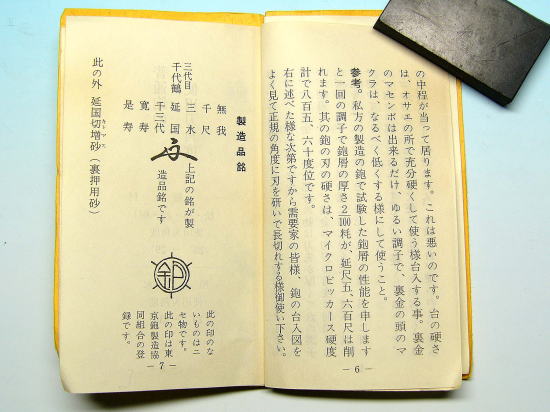 の中程が当って居ります。これは悪いのです。台の硬さ
は、オサエの所で充分硬くして使う様台入する事。裏金
のマセンボは出来るだけ、ゆるい調子で、裏金の頭のマ
クラは、なるべく低くする様にして使うこと。
参考。私方の製造の鉋で試験した鉋屑の性能を申します
と一回の調子で鉋屑の厚さ2/100粍が、延尺五、六百尺は削
れます。其の鉋の刃の硬さは、マイクロビッカース硬度
計で八百五、六十度位です。
右に述べた様な次第ですから需要家の皆様、鉋の台入図を
よく見て正規の角度に刃を研いで長切れする様御使い下さい。
— 6 —
製造品銘
無我
千尺
三水
三代目 延国
千代鶴 千三代
寛寿
是寿
上記の銘が製
造品銘です
此の印のな
いものはニ
セ物です。
此の印は東
京鉋製造協
同組合の登
録です。
此の外 延国切増砂(裏押用砂)
— 7 —